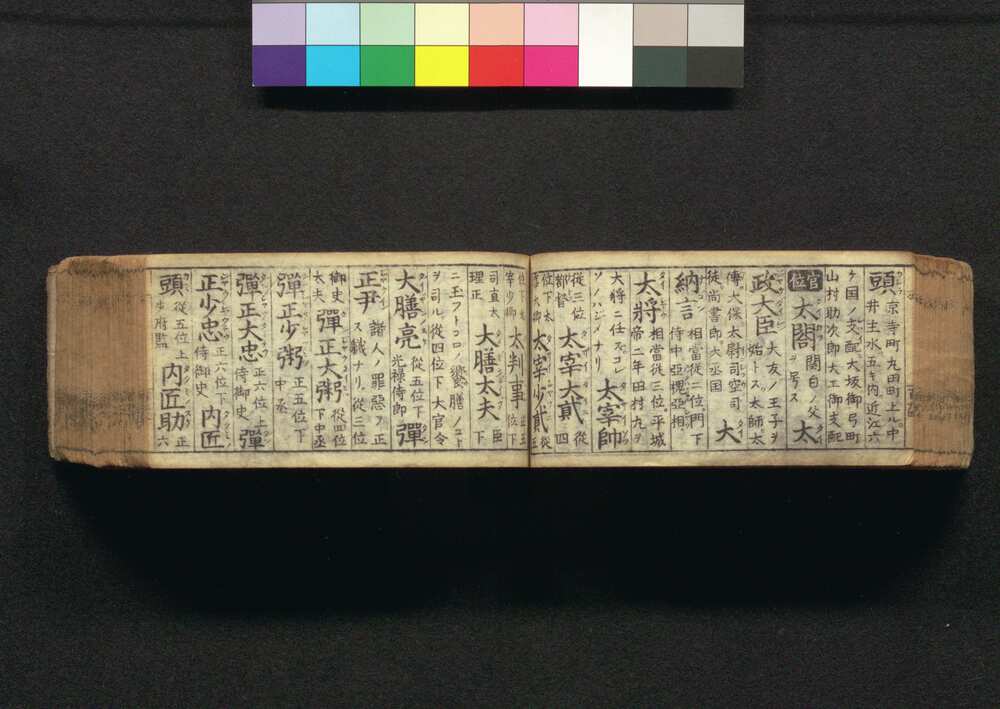 頭 京寺町丸田町上ル中
井主水五き内近江六
ケ国ノ支配大坂御弓町
山村助次郎大工御支配
官位 太閤 関白ノ父ヲ号ス 太
政大臣 大友ノ王子ヲ
始トス太師太
傅大保太尉司空司
徒尚書郎大丞国 大
納言 相當從二位門下
侍中亞槐亞相
太將 相當從三位平城
帝二年田村丸ヲ
大將ニ任スコレ
ソノハジメナリ 太宰帥
從三位
都督 太宰大貳 從四
位下太
宰大卿 太宰少貳 從五
位下太
宰少卿 太判事 正五位下
司直大
理正 大膳太夫 臣下
ニ玉フトコロノ饗膳ノコト
ヲ司ル從四位下大官令
大膳亮 從五位下大
光禄侍郎 彈
正尹 諸人ノ罪惡ヲ正
ス軄ナリ從三位
御史
太夫 彈正大弼 從四位下中丞
彈正少弼 正五位下
中丞
彈正大忠 正六位上
侍御史 彈
正少忠 正六位下
侍御史 内匠
頭 從五位上
少府監 内匠助 正六